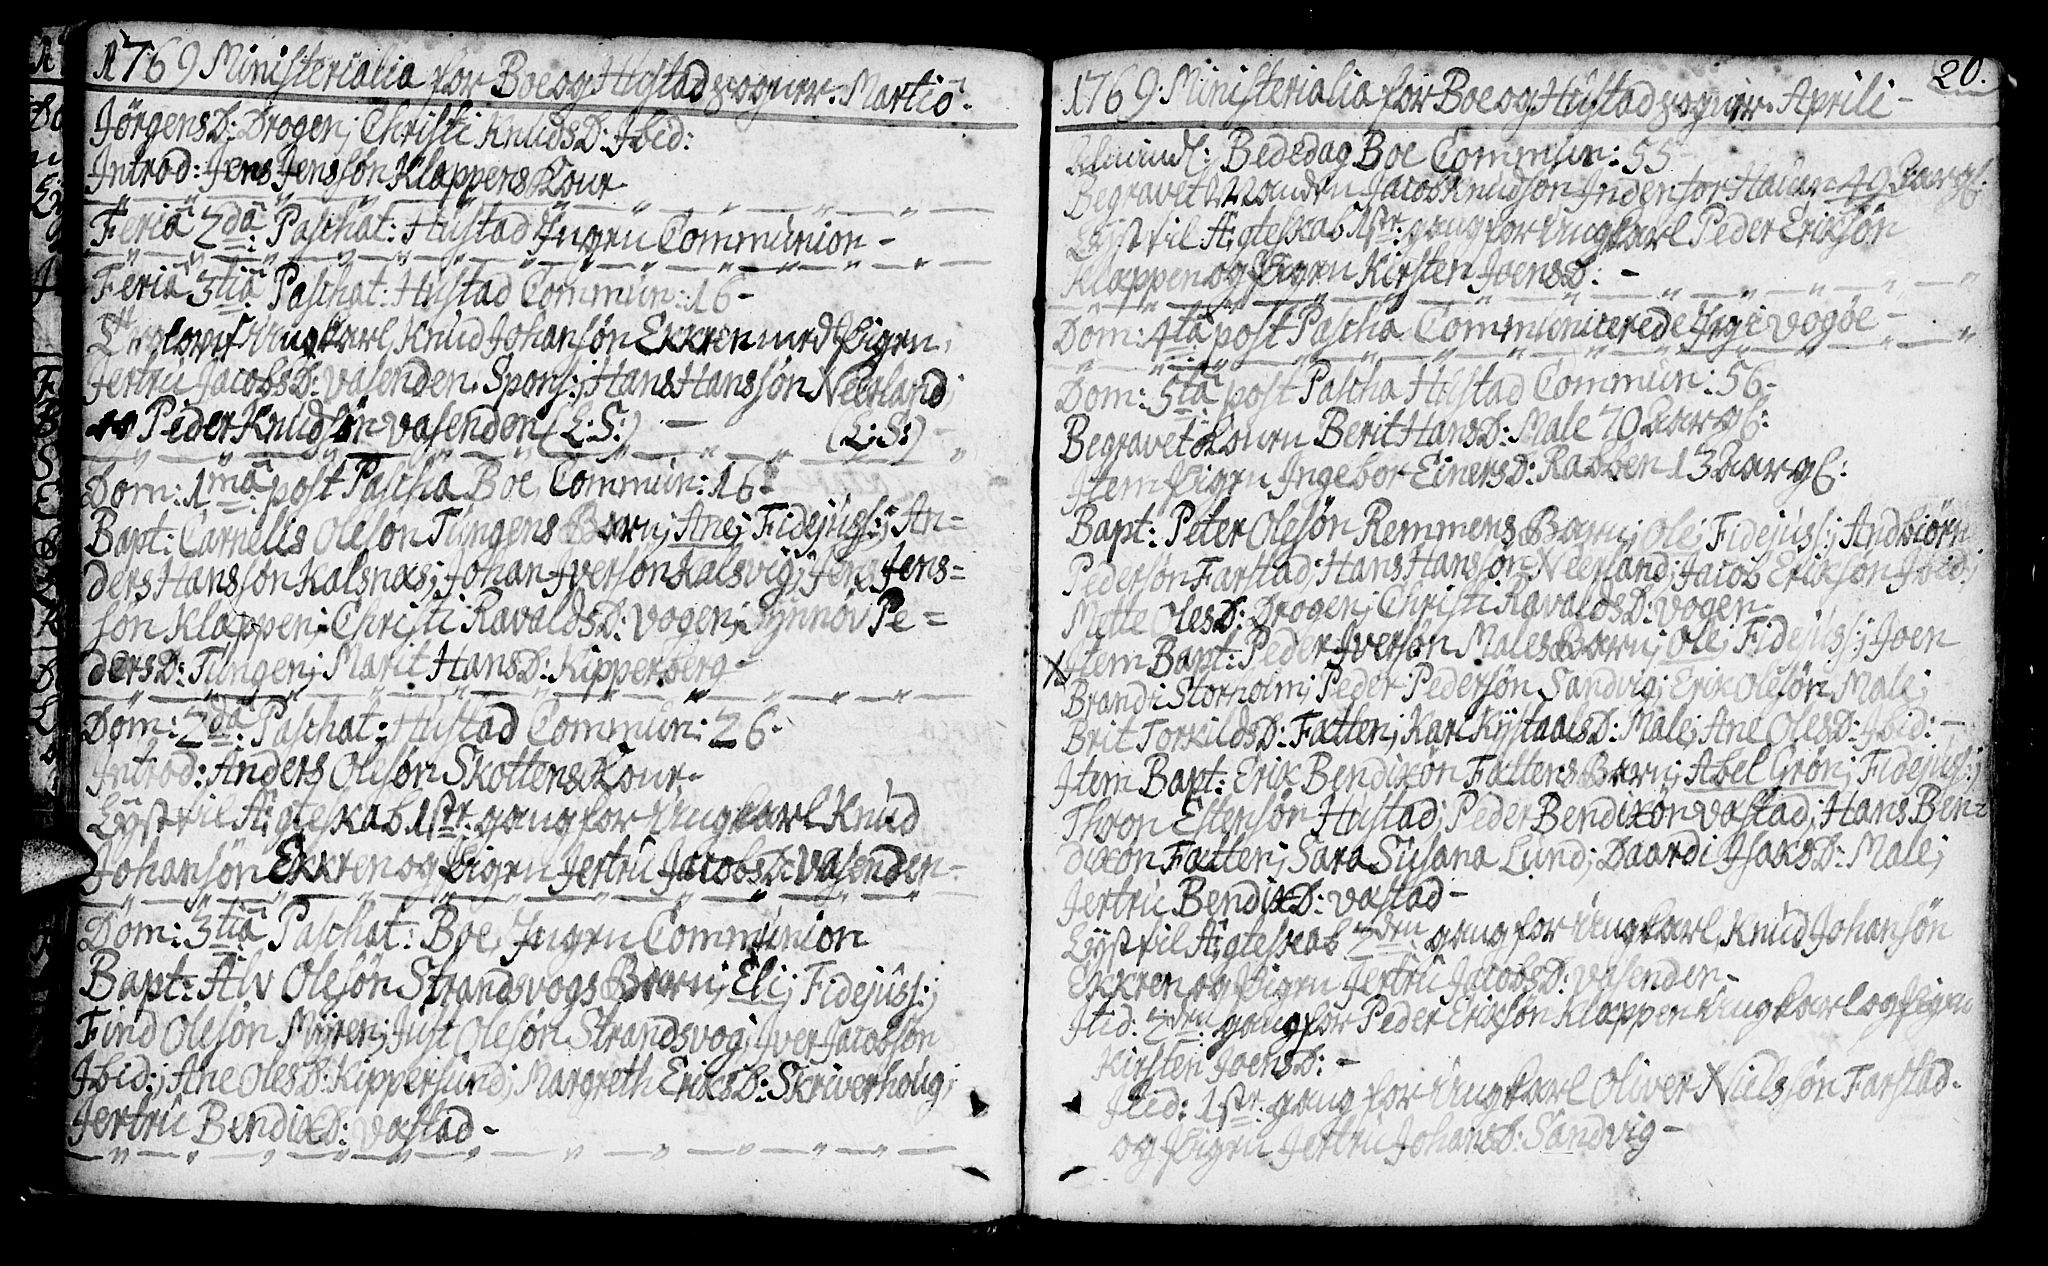 1769 Ministerialia for Boe og Hustad sogner. Martio.
JørgensD: Drogen; Christi KnudsD: Ibid:
Introd: Jens Jenssøn Klappens Kone
Feriâ 2dâ Paschat: Hustad Ingen Communion -
Feriâ 3tiâ Paschat: Hustad Commun: 16 -
Trolovet Ungkarl Knud Johansøn Ekkren med Pigen
Jertru JacobsD: Vasenden. Spons: Hans Hanssøn Neerland;
Peder Knudsøn Vasenden (L:S:) - (L:S:)
Dom: 1mâ post Pascha Boe Commun: 16
Bapt: Carnelis Olesøn Tungens Barn; Ane; Fidejuss:; An=
ders Hanssøn Kalsnæs; Johan Iversøn Kalsvig; Jens Jens=
søn Klappen; Christi RavaldsD: Vogen; Synnøv Pe=
dersD: Tungen; Marit HansD: Kipperberg -
Dom: 2dâ Paschat: Hustad Commun: 26 -
Introd: Anders Olesøn Skottens Kone -
Lyst til Ægteskab 1ste gang for Ungkarl Knud
Johansøn Ekkren og Pigen Jertru JacobsD: Vasenden -
Dom: 3tiâ Paschat: Boe Ingen Communion
Bapt: Alv Olesøn Strandsvogs Barn; Eli; Fidejuss:;
Find Olesøn Myren; Just Olesøn Strandsvog; Iver Jacobsøn
Ibid:; Ane OlesD: Kippersund; Margreth EriksD: Skriverhoug;
Jertru BendixD: Vastad -
20.
1769. Ministerialia for Boe og Hustad sogner. Aprili -
Almindl: Bededag Boe Commun: 55 -
Begravet Manden Jacob Knudsøn Indenfor Haven 49 Aar gl:
Lyst til Ægteskab 1ste gang for Ungkarl Peder Eriksøn
Klappen og Pigen Kirsten JoensD: -
Dom: 4tâ post Pascha Communicerede Jeg i Vogøe -
Dom: 5tâ post Pascha Hustad Commun: 56 -
Begravet Konen Berit HansD: Male 70 Aar gl:
Item Pigen Ingebor EinersD: Rabben 13 Aar gl:
Bapt: Peter Olesøn Remmens Barn; Ole; Fidejuss:; Andbiørn
Pedersøn Farstad; Hans Hanssøn Neerland; Jacob Eriksøn Ibid;
Mitte OlesD: Drogen; Christi RavaldsD: Vogen -
X Item Bapt: Peder Iversøn Males Barn; Ole; Fidejuss:; Joen
Brandi Storholm; Peder Pedersøn Sandvig; Erik Olesøn Male;
Brit TorkildsD: Fatten; Kari KystaalsD: Male; Ane OlesD: Ibid: -
Item Bapt: Erik Bendixøn Fattens Barn; Abel Grøn; Fidejuss:;
Thron Estensøn Hustad; Peder Bendixøn Vastad; Hans Ben=
dixøn Fatten; Sara Susana Lund; Baardi IsaksD: Male;
Jertru BendixD: Vastad -
Lyst til Ægteskab 2den gang for Ungkarl Knud Johansøn
Ekkren og Pigen Jertru JacobsD: Vasenden -
Itid: 2den gang for Peder Eriksøn Klappen Ungkarl og Pigen
Kirsten JoensD: -
Itid: 1ste gang for Ungkarl Oliver Nielssøn Farstad -
og Pigen Jertru JohansD: Sandvig -